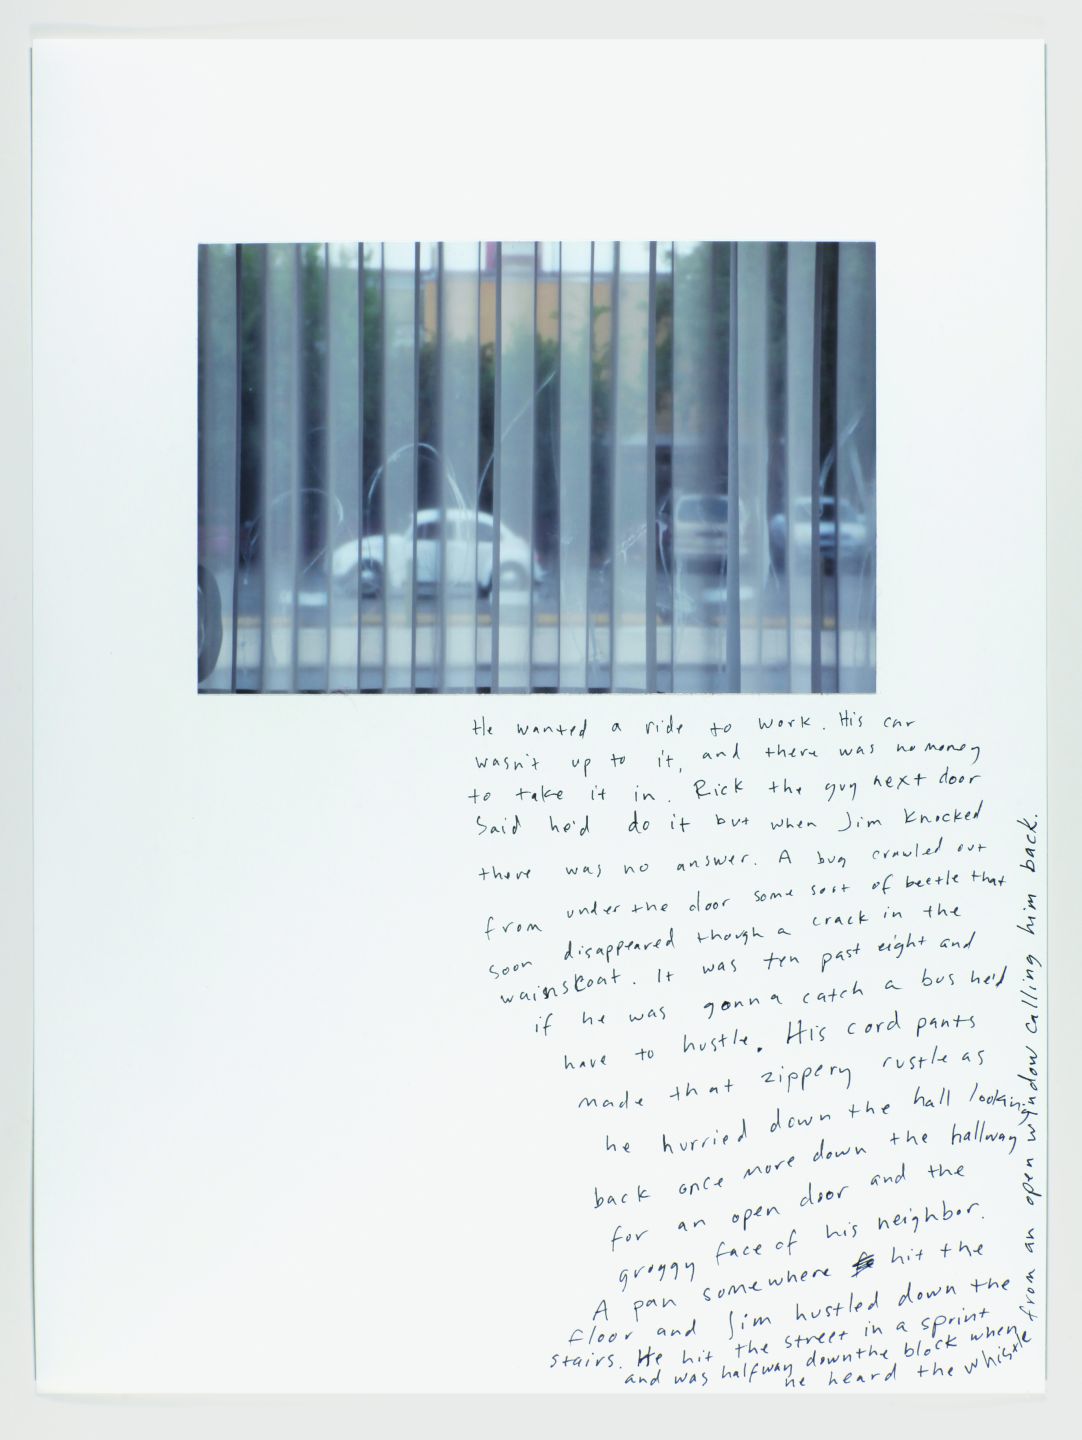 He wanted a ride to work. His car
wasn't up to it, and there was no money
to take it in. Rick the guy next door
said he'd do it but when Jim knocked
there was no answer. A bug crawled out
from under the door some sort of beetle that
soon disappeared though a crack in the
wainskoat. It was ten past eight and
if he was gonna catch a bus he'd
have to hustle. His cord pants
made that zippery rustle as
he hurried down the hall looking
back once more down the hallway
for an open door and the
groggy face of his neighbor.
A pan somewhere hit the
floor and Jim hustled down the
stairs. He hit the street in a sprint
and was halfway down the block when
he heard the whistle
from an open window calling him back.